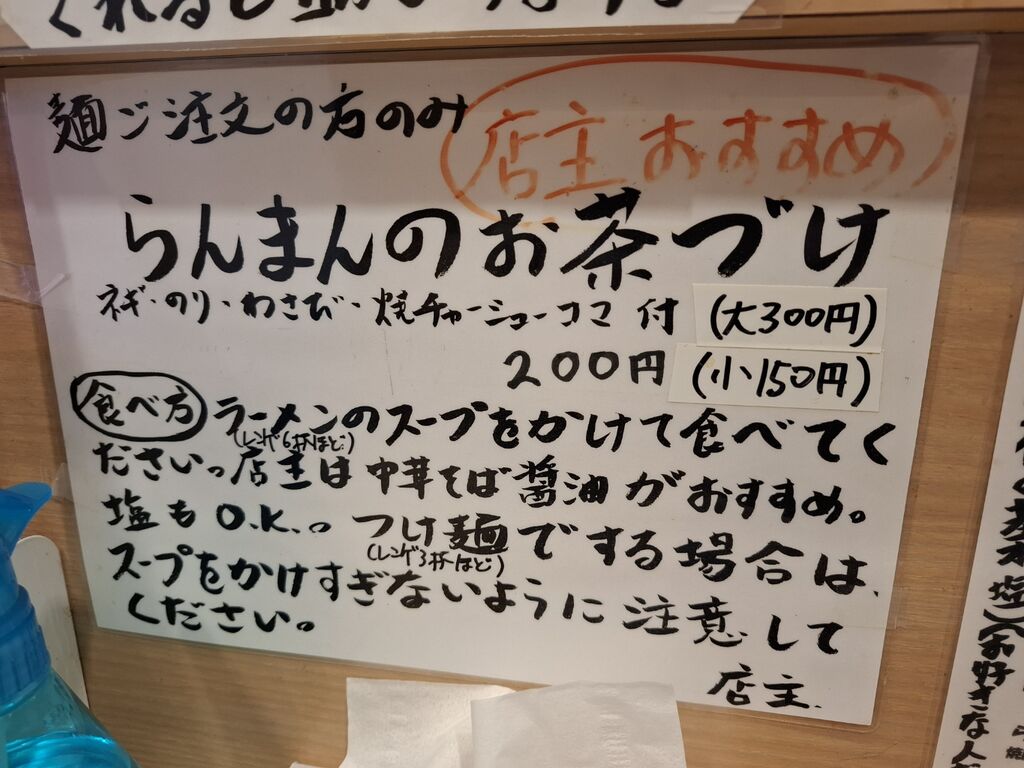 麺ご注文の方のみ
店主おすすめ
らんまんのお茶づけ
ネギ・のり・わさび・焼チャーシューコマ付 (大300円)
200円 (小150円)
食べ方 ラーメンのスープをかけて食べてく
(レンゲ6杯ほど)
ださいっ店主は中華そば醤油がおすすめ。
塩もO.K.。つけ麺でする場合は、
(レンゲ3杯ほど)
スープをかけすぎないように注意して
ください。
店主.
(お好きな人